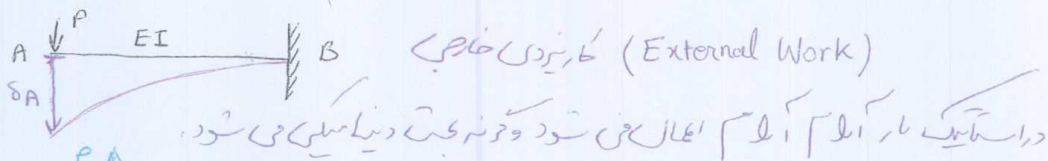 P
A EI B کار نیروی خارجی (External Work)
δA
در استاتیک بار آرام آرام اعمال می شود وگرنه بحث دینامیکی می شود.